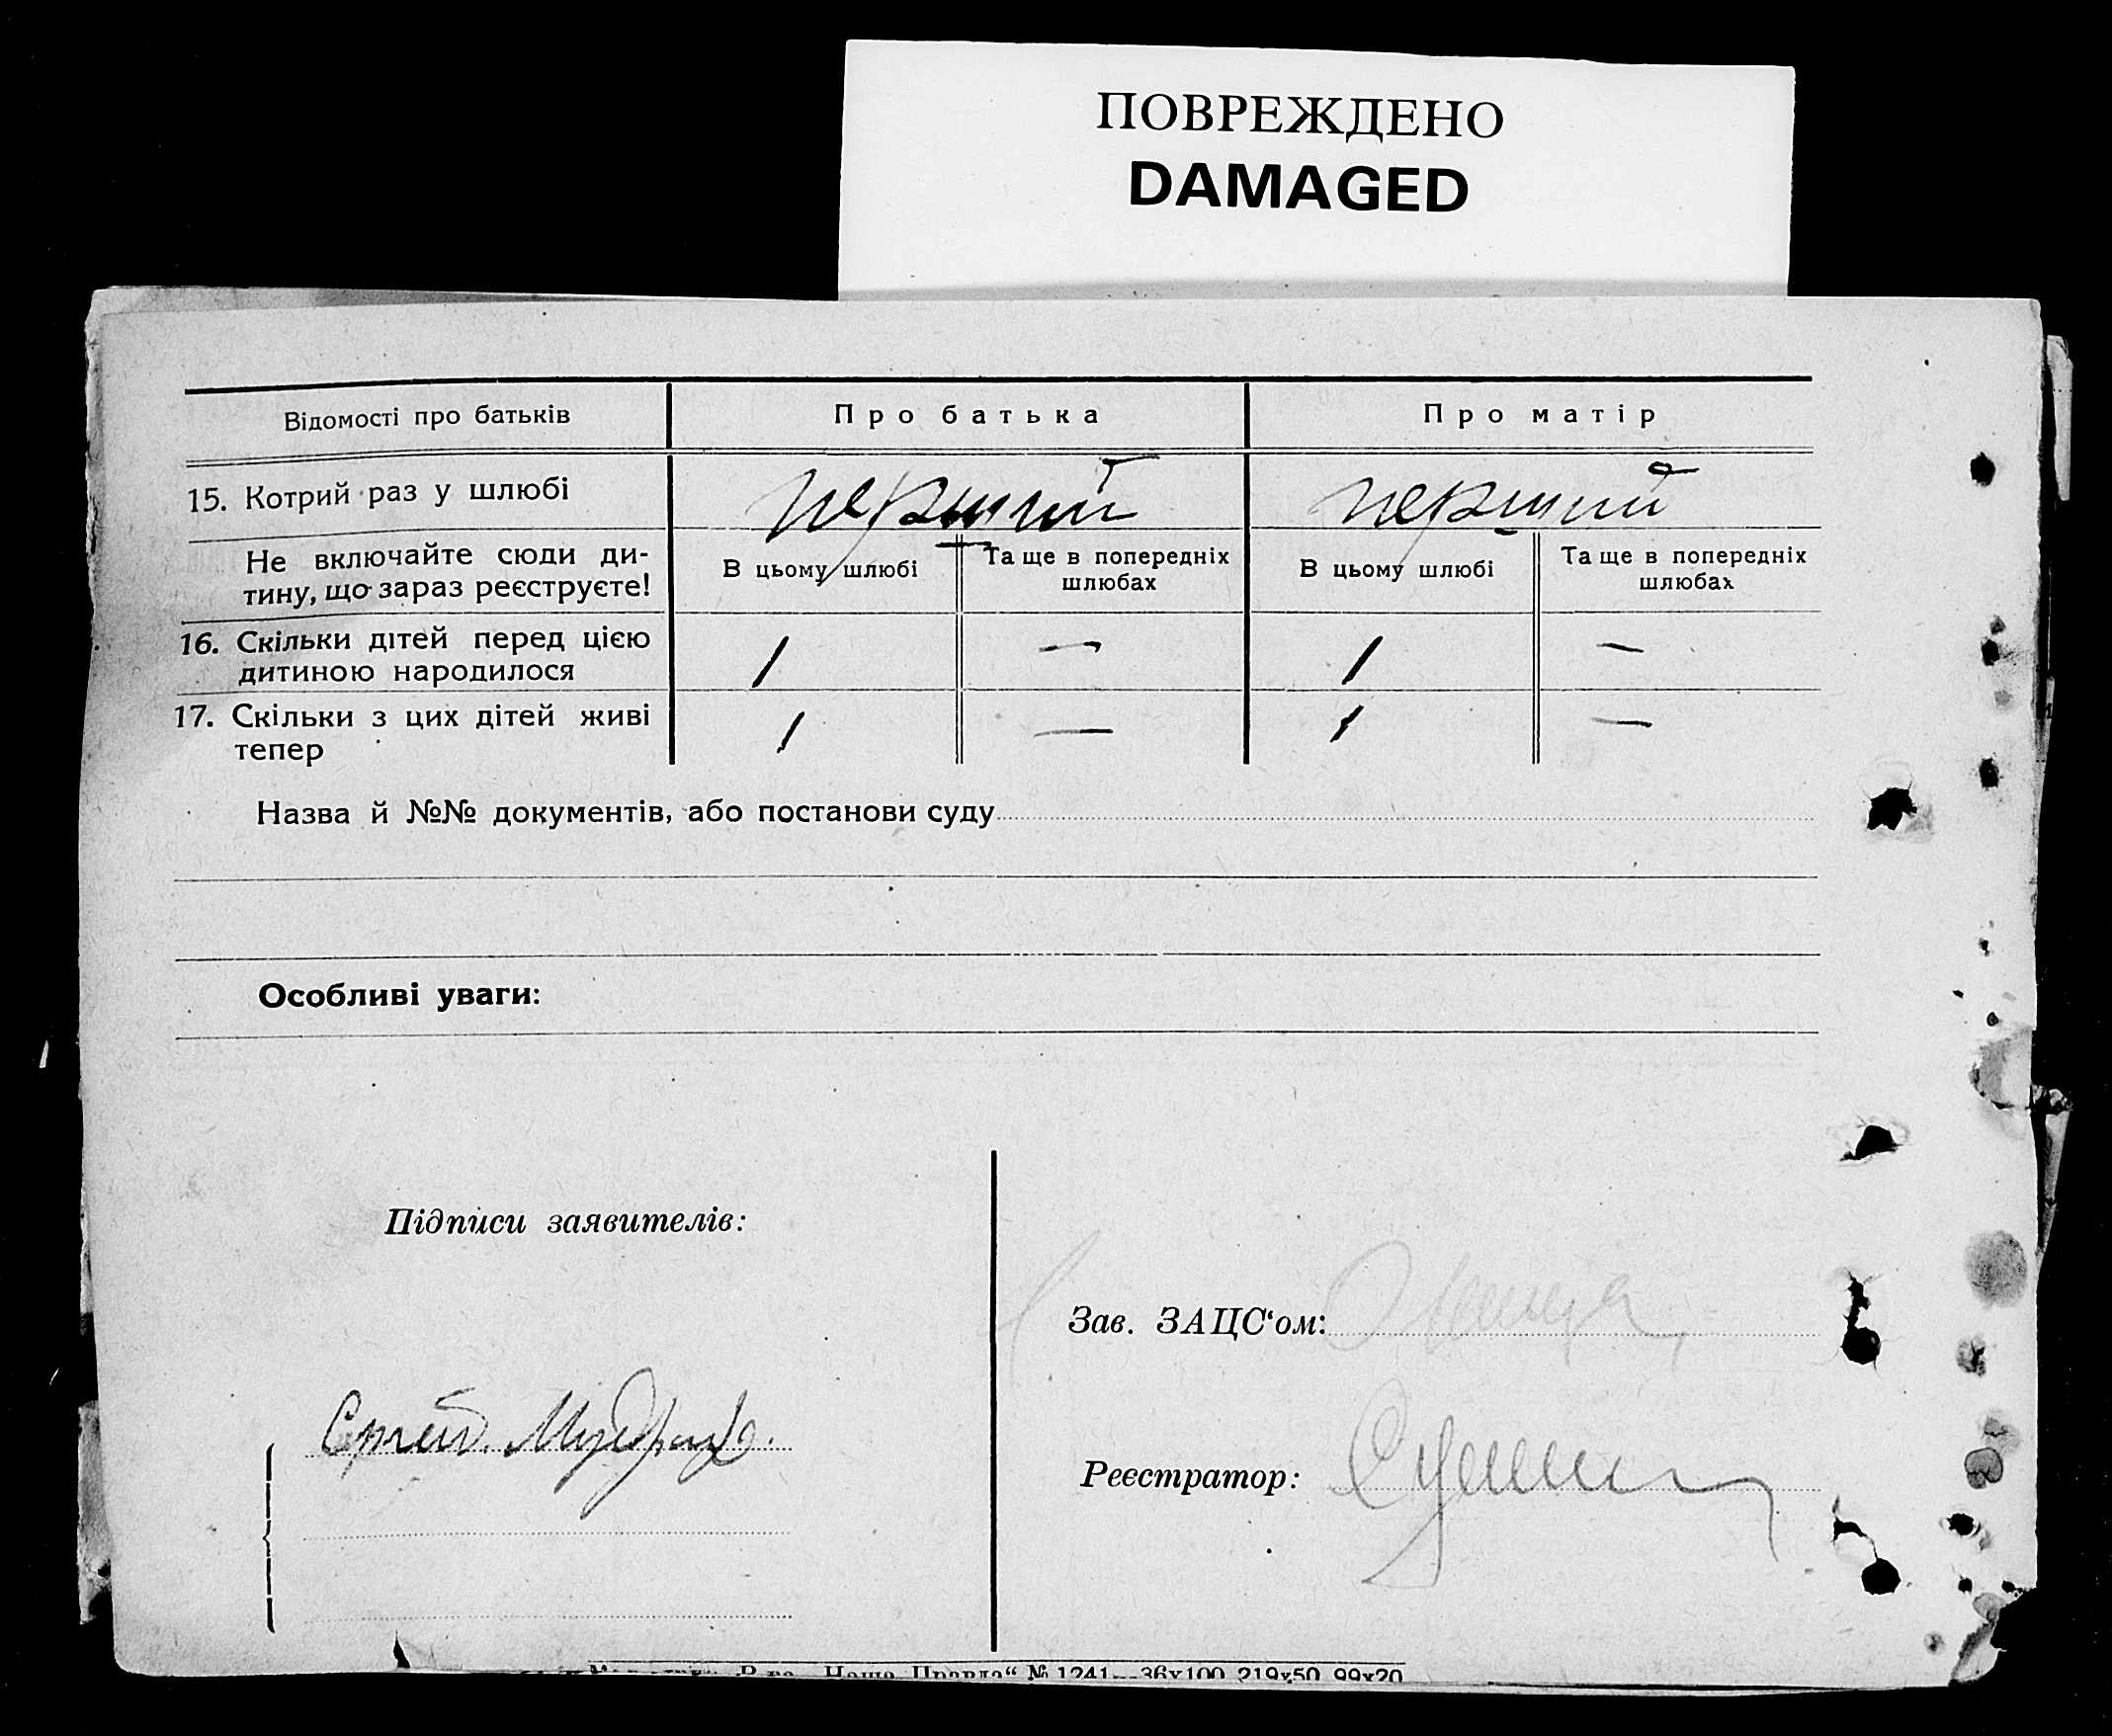 ПОВРЕЖДЕНО
DAMAGED
Відомості про батьків
Про батька
Про матір
15. Котрий раз у шлюбі
перший
перший
Не включайте сюди ди-
тину, що зараз реєструєте!
В цьому шлюбі
Та ще в попередніх
шлюбах
В цьому шлюбі
Та ще в попередніх
шлюбах
16. Скільки дітей перед цією
дитиною народилося
1
—
1
—
17. Скільки з цих дітей живі
тепер
1
—
1
—
Назва й №№ документів, або постанови суду
Особливі уваги:
Підписи заявителів:
Зав. ЗАЦС‘ом:
Реєстратор:
„Наша Правда“ № 1241—36х100 219х50 99х20